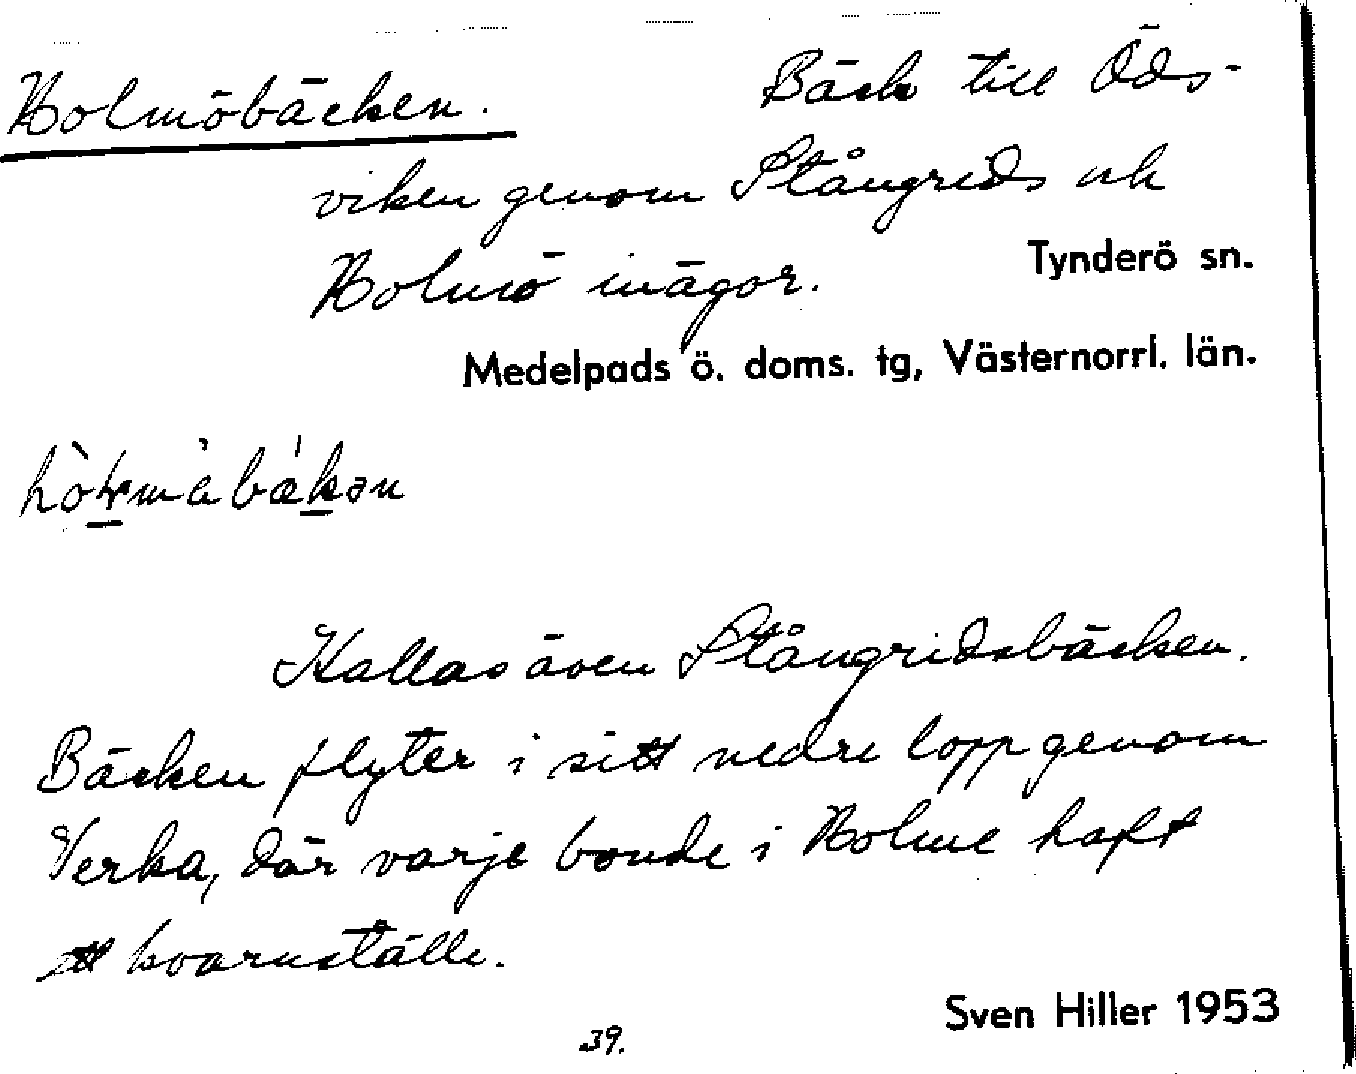 Holmöbäcken. Bäck till Öds-
viken genom Stångrids och
Holmö inägor.
Tynderö sn.
Medelpads ö. doms. tg, Västernorrl. län.
Kallas även Stångridsbäcken.
Bäcken flyter i sitt nedre lopp genom
Verka, där varje bonde i Holme haft
ett kvarnställe.
Sven Hiller 1953
39.